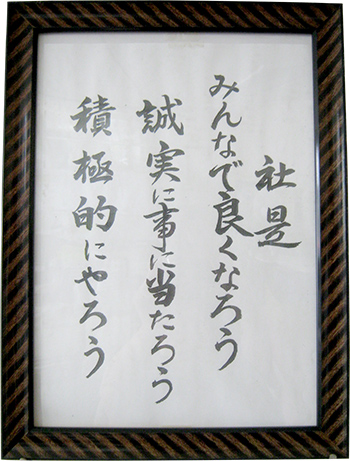 社是
みんなで良くなろう
誠実に事に当たろう
積極的にやろう